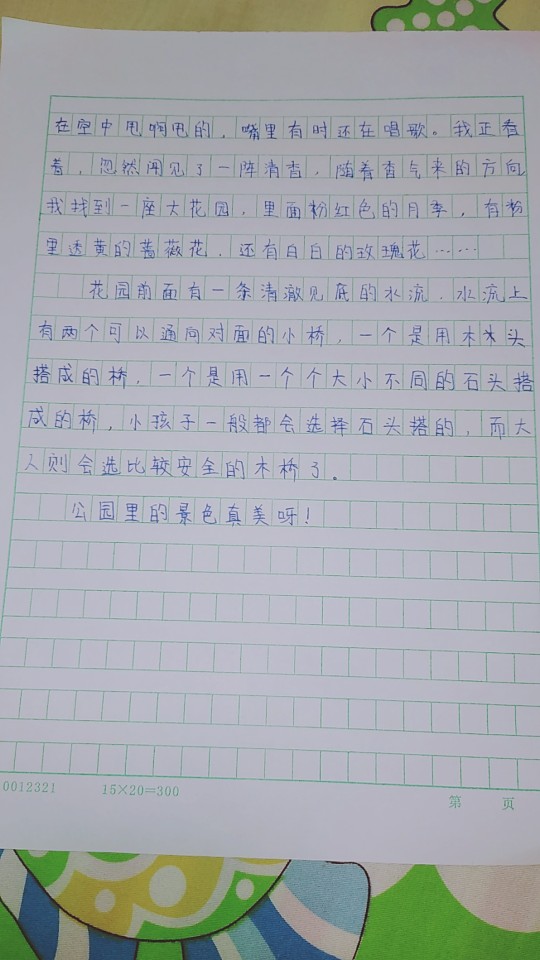 在空中甩啊甩的，嘴里有时还在唱歌。我正看
着，忽然闻见了一阵清香，随着香气来的方向
我找到一座大花园，里面粉红色的月季，有粉
里透黄的蔷薇花，还有白白的玫瑰花……
花园前面有一条清澈见底的水流，水流上
有两个可以通向对面的小桥，一个是用木木头
搭成的桥，一个是用一个个大小不同的石头搭
成的桥，小孩子一般都会选择石头搭的，而大
人则会选比较安全的木桥了。
公园里的景色真美呀！
0012321 15×20=300 第 页